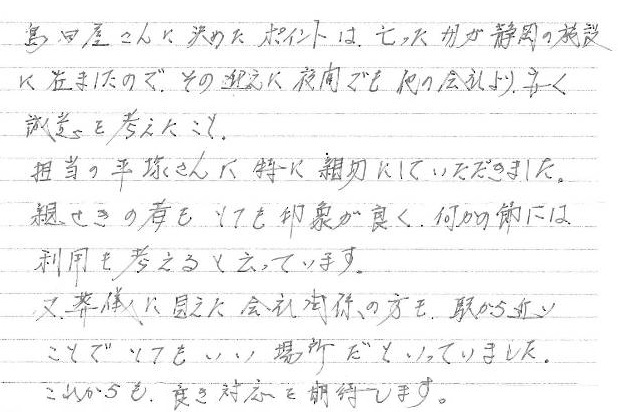 島田屋さんに決めたポイントは、亡った母が静岡の施設
に居ましたので、その迎えに夜間でも他の会社より、
誠意を考えたこと。
担当の平塚さんに特に親切にしていただきました。
親せきの者もとても印象が良く、何かの節には
利用も考えると云っています。
又、葬儀に見えた会社関係の方も、駅から近い
ことでとてもいい場所だといっていました。
これからも、良き対応を期待します。